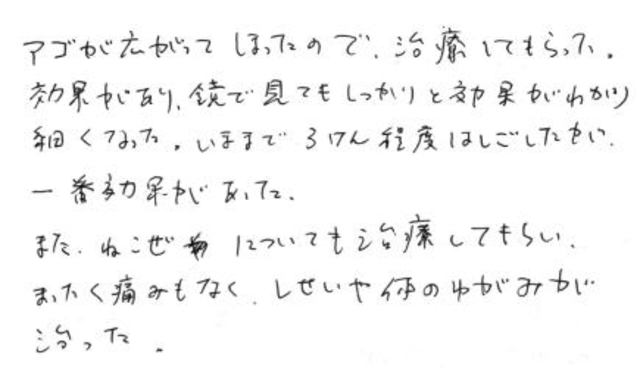 アゴが広がってしまったので、治療してもらった。
効果があり、鏡で見てもしっかりと効果がわかり
細くなった。いままで3けん程度はしごしたが、
一番効果があった。
また、ねこぜについても治療してもらい、
まったく痛みもなく、しせいや体のゆがみが
治った。